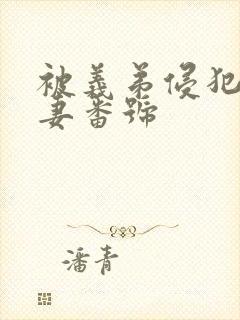 被義弟侵犯
妻番號
潘青